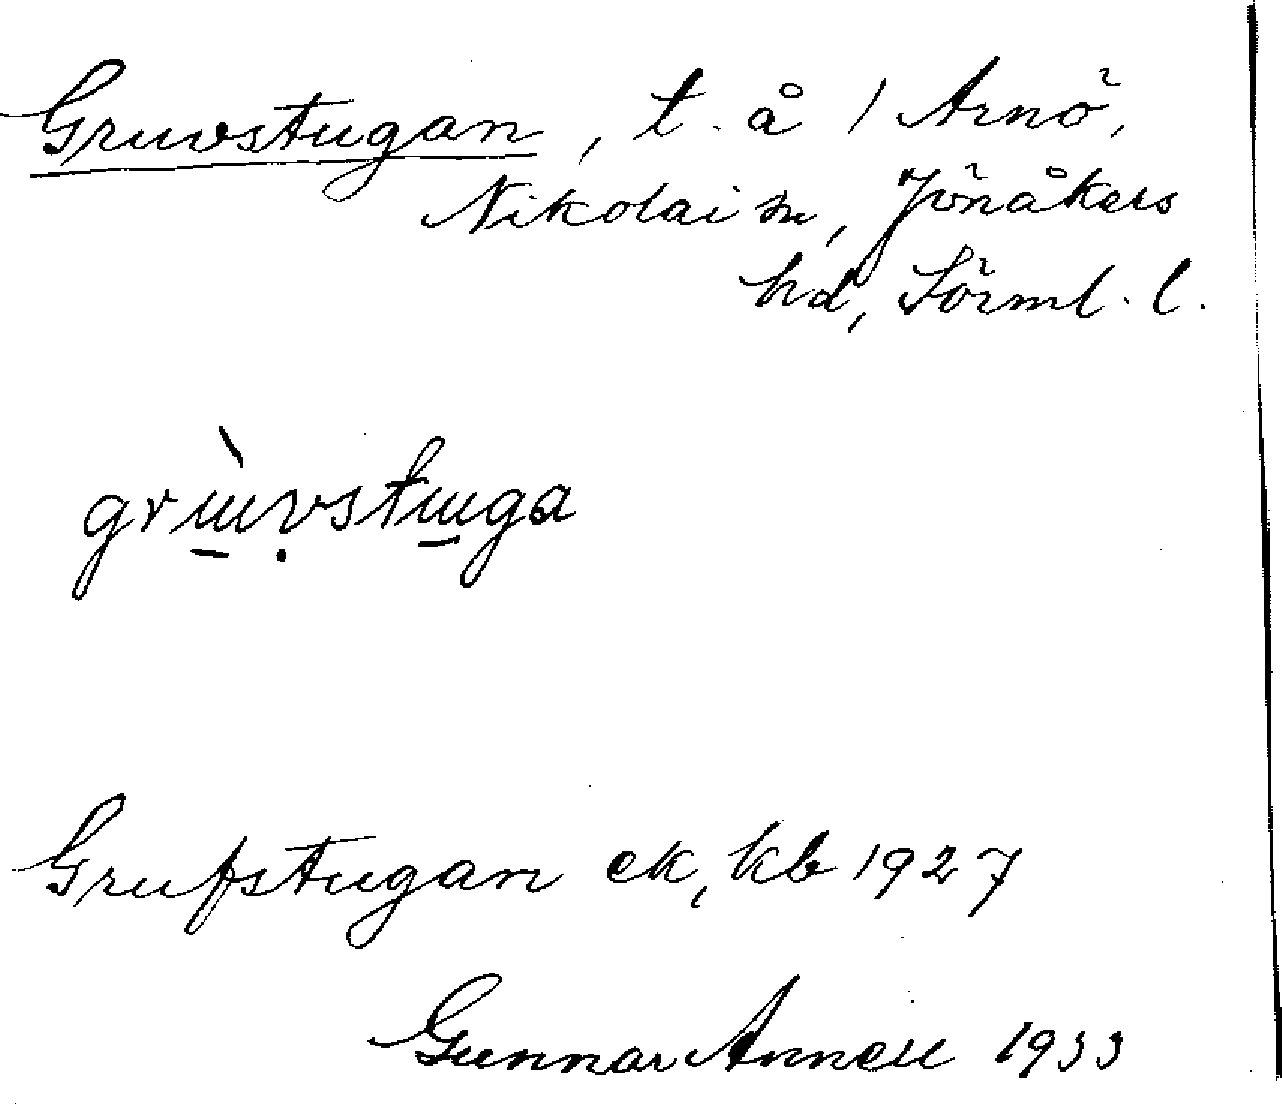 Gruvstugan, t. å / Arnö,
Nikolai sn, Jönåkers
hd, Sörml. l.
grɯ̀vstɯga
Grufstugan ek, kb 1927
Gunnar Annell 1933